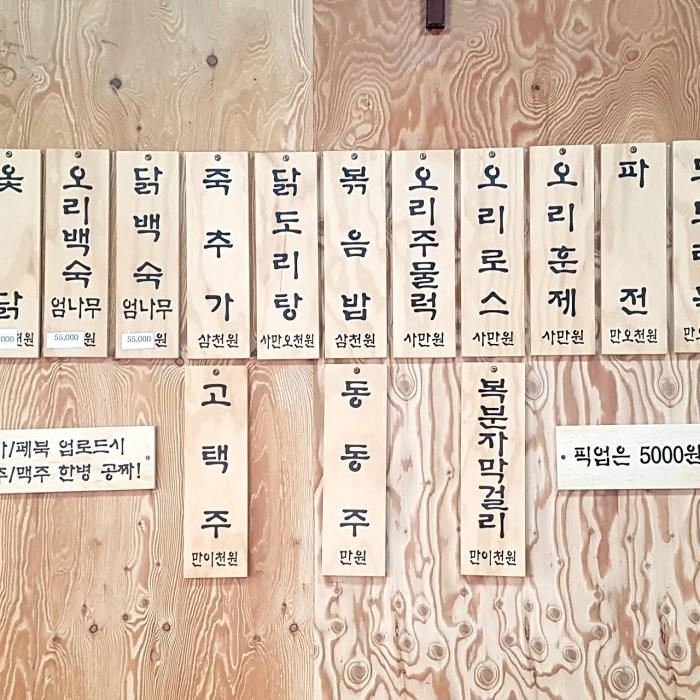 옻
닭
000원
오리백숙
엄나무
55,000원
닭백숙
엄나무
55,000원
죽추가
삼천원
닭도리탕
사만오천원
볶음밥
삼천원
오리주물럭
사만원
오리로스
사만원
오리훈제
사만원
파전
만오천원
고택주
만이천원
동동주
만원
복분자막걸리
만이천원
/페북 업로드시
/맥주 한병 공짜!
픽업은 5000원